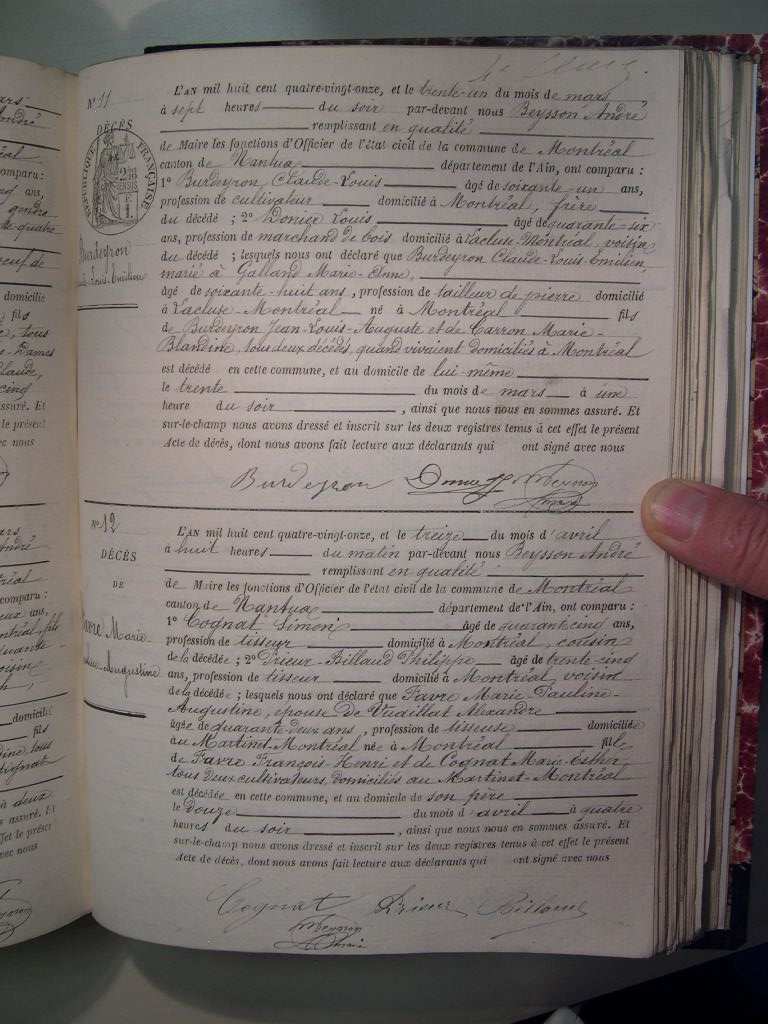 N° 11
DÉCÈS
RÉPUBLIQUE FRANÇAISE
Burdeyron
Louis-Emilien
L'AN mil huit cent quatre-vingt-onze, et le trente-un du mois de mars
à sept heures du soir par-devant nous Beysson André
remplissant en qualité
de Maire les fonctions d'Officier de l'état civil de la commune de Montréal
canton de Nantua département de l'Ain, ont comparu :
1° Burdeyron Claude-Louis âgé de soixante-un ans,
profession de cultivateur domicilié à Montréal, frère
du décédé ; 2° Donier Louis âgé de quarante-six
ans, profession de marchand de bois domicilié à Lacluse-Montréal, voisin
du décédé ; lesquels nous ont déclaré que Burdeyron Claude-Louis-Emilien,
marié à Galland Marie-Anne,
âgé de soixante-huit ans, profession de tailleur de pierre domicilié
à Lacluse-Montréal né à Montréal fils
de Burdeyron Jean-Louis-Auguste et de Carron Marie-
Blandine, tous deux décédés, quand vivaient domiciliés à Montréal
est décédé en cette commune, et au domicile de lui-même
le trente du mois de mars à une
heure du soir , ainsi que nous nous en sommes assuré. Et
sur-le-champ nous avons dressé et inscrit sur les deux registres tenus à cet effet le présent
Acte de décès, dont nous avons fait lecture aux déclarants qui ont signé avec nous
Burdeyron
N° 12
DÉCÈS
DE
Favre Marie
Augustine
L'AN mil huit cent quatre-vingt-onze, et le treize du mois d'avril
à huit heures du matin par-devant nous Beysson André
remplissant en qualité
de Maire les fonctions d'Officier de l'état civil de la commune de Montréal
canton de Nantua département de l'Ain, ont comparu :
1° Cognat Simon âgé de quarante cinq ans,
profession de tisseur domicilié à Montréal, cousin
de la décédée ; 2° Prieur-Billaud Philippe âgé de trente-cinq
ans, profession de tisseur domicilié à Montréal, voisin
de la décédée ; lesquels nous ont déclaré que Favre Marie-Pauline-
Augustine, épouse de Vuaillat Alexandre
âgée de quarante-deux ans, profession de tisseuse domiciliée
au Martinet-Montréal née à Montréal fille
de Favre François-Henri et de Cognat Marie-Esther,
tous deux cultivateurs, domiciliés au Martinet-Montréal
est décédée en cette commune, et au domicile de son père
le douze du mois d'avril à quatre
heures du soir , ainsi que nous nous en sommes assuré. Et
sur-le-champ nous avons dressé et inscrit sur les deux registres tenus à cet effet le présent
Acte de décès, dont nous avons fait lecture aux déclarants qui ont signé avec nous
Cognat Prieur Billaud